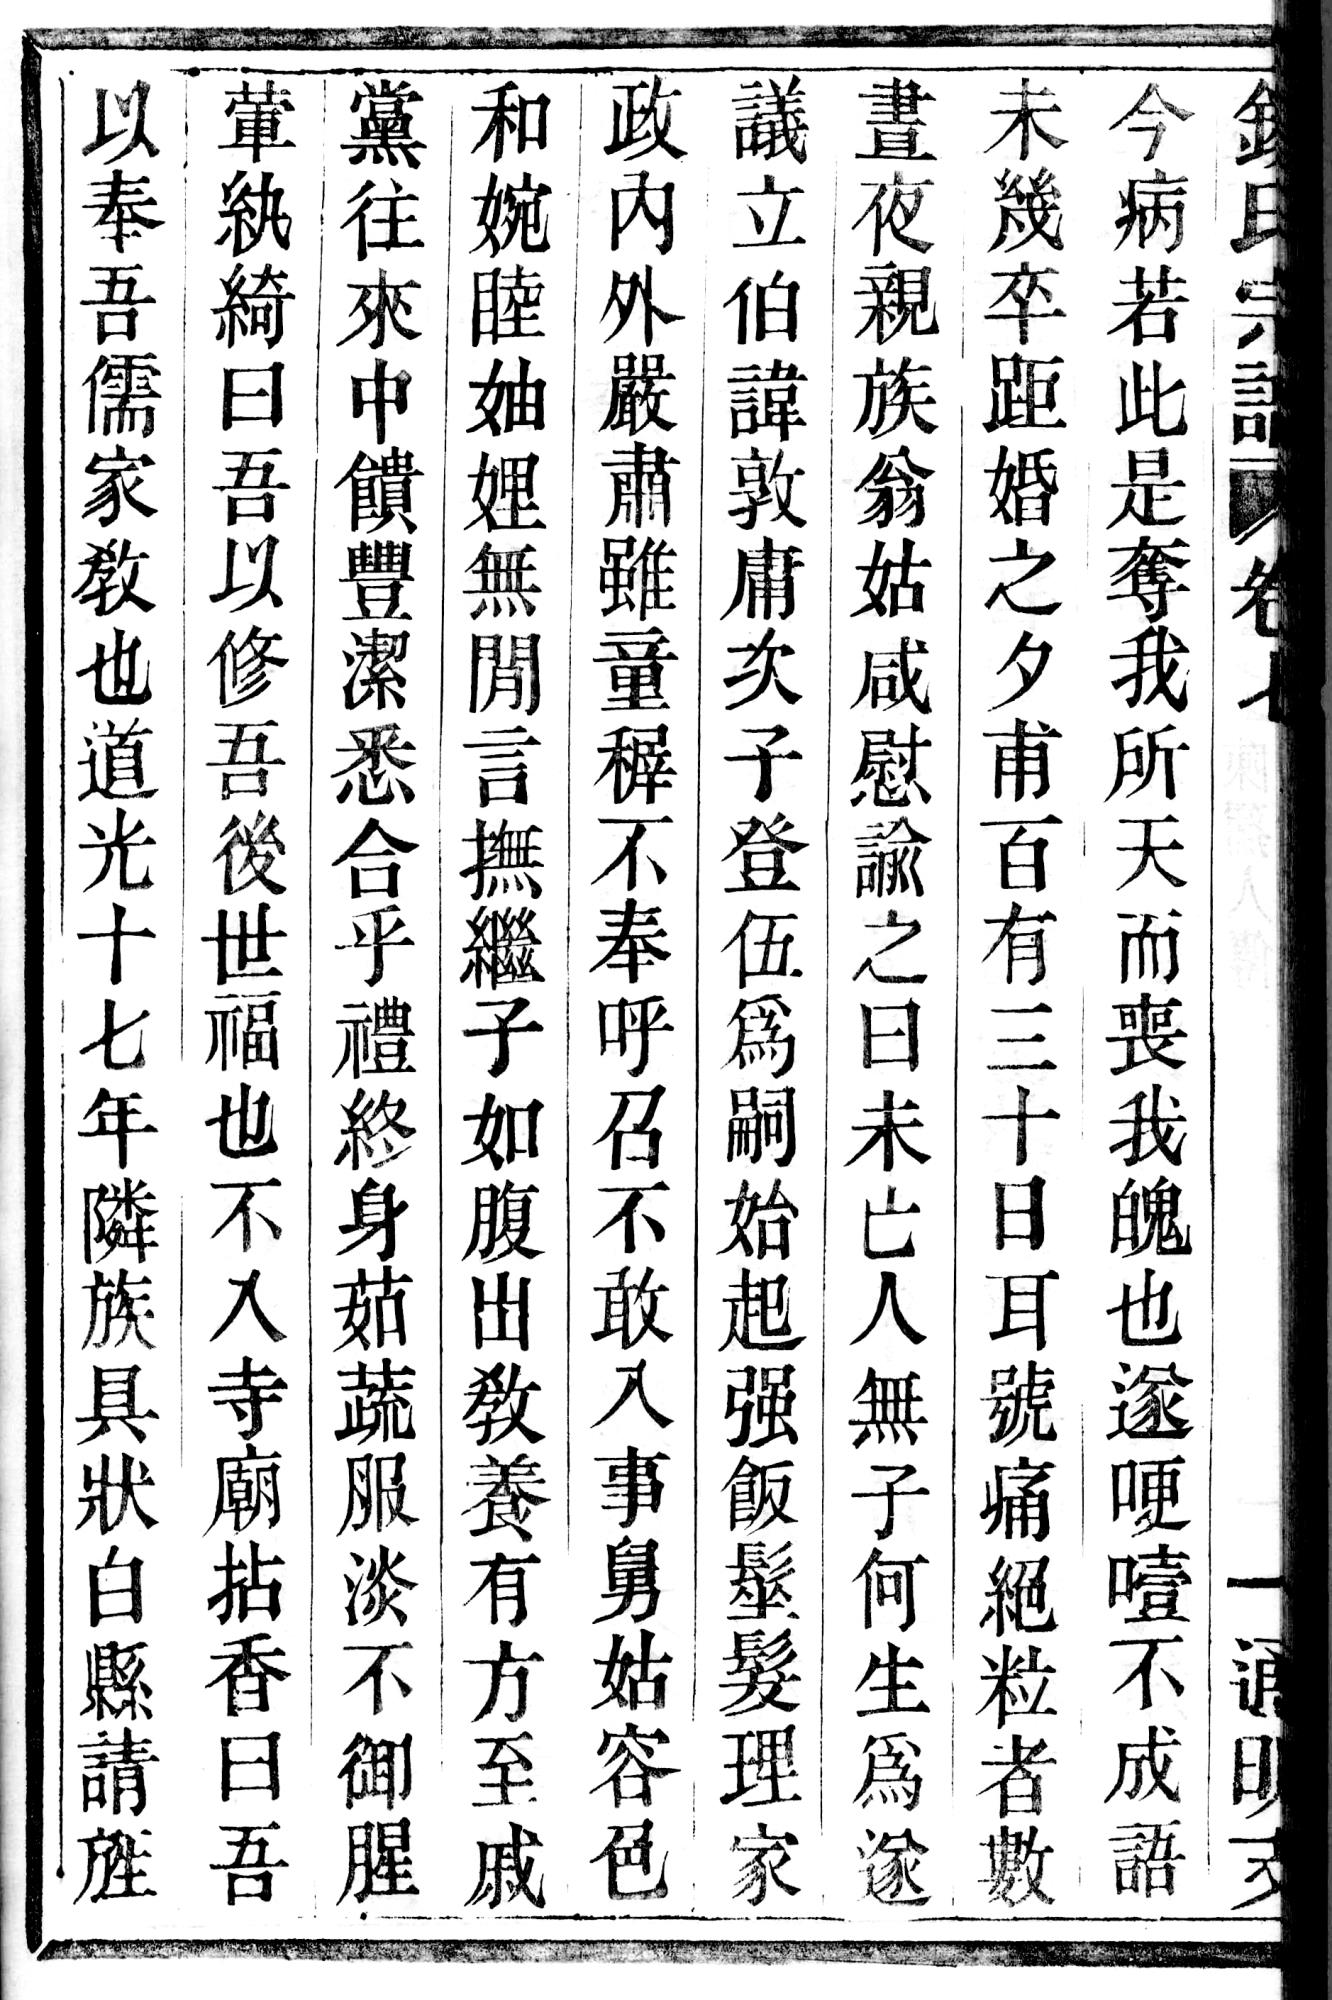 氏宗譜 卷七 一 通明支
今病若此是奪我所天而喪我魄也遂哽噎不成語
未幾卒距婚之夕甫百有三十日耳號痛絕粒者數
晝夜親族翁姑咸慰諭之曰未亡人無子何生爲遂
議立伯諱敦庸次子登伍爲嗣始起强飯髽髮理家
政內外嚴肅雖童穉不奉呼召不敢入事舅姑容色
和婉睦妯娌無閒言撫繼子如腹出教養有方至戚
黨往來中饋豐潔悉合乎禮終身茹蔬服淡不御腥
葷紈綺曰吾以修吾後世福也不入寺廟拈香曰吾
以奉吾儒家教也道光十七年隣族具狀白縣請旌